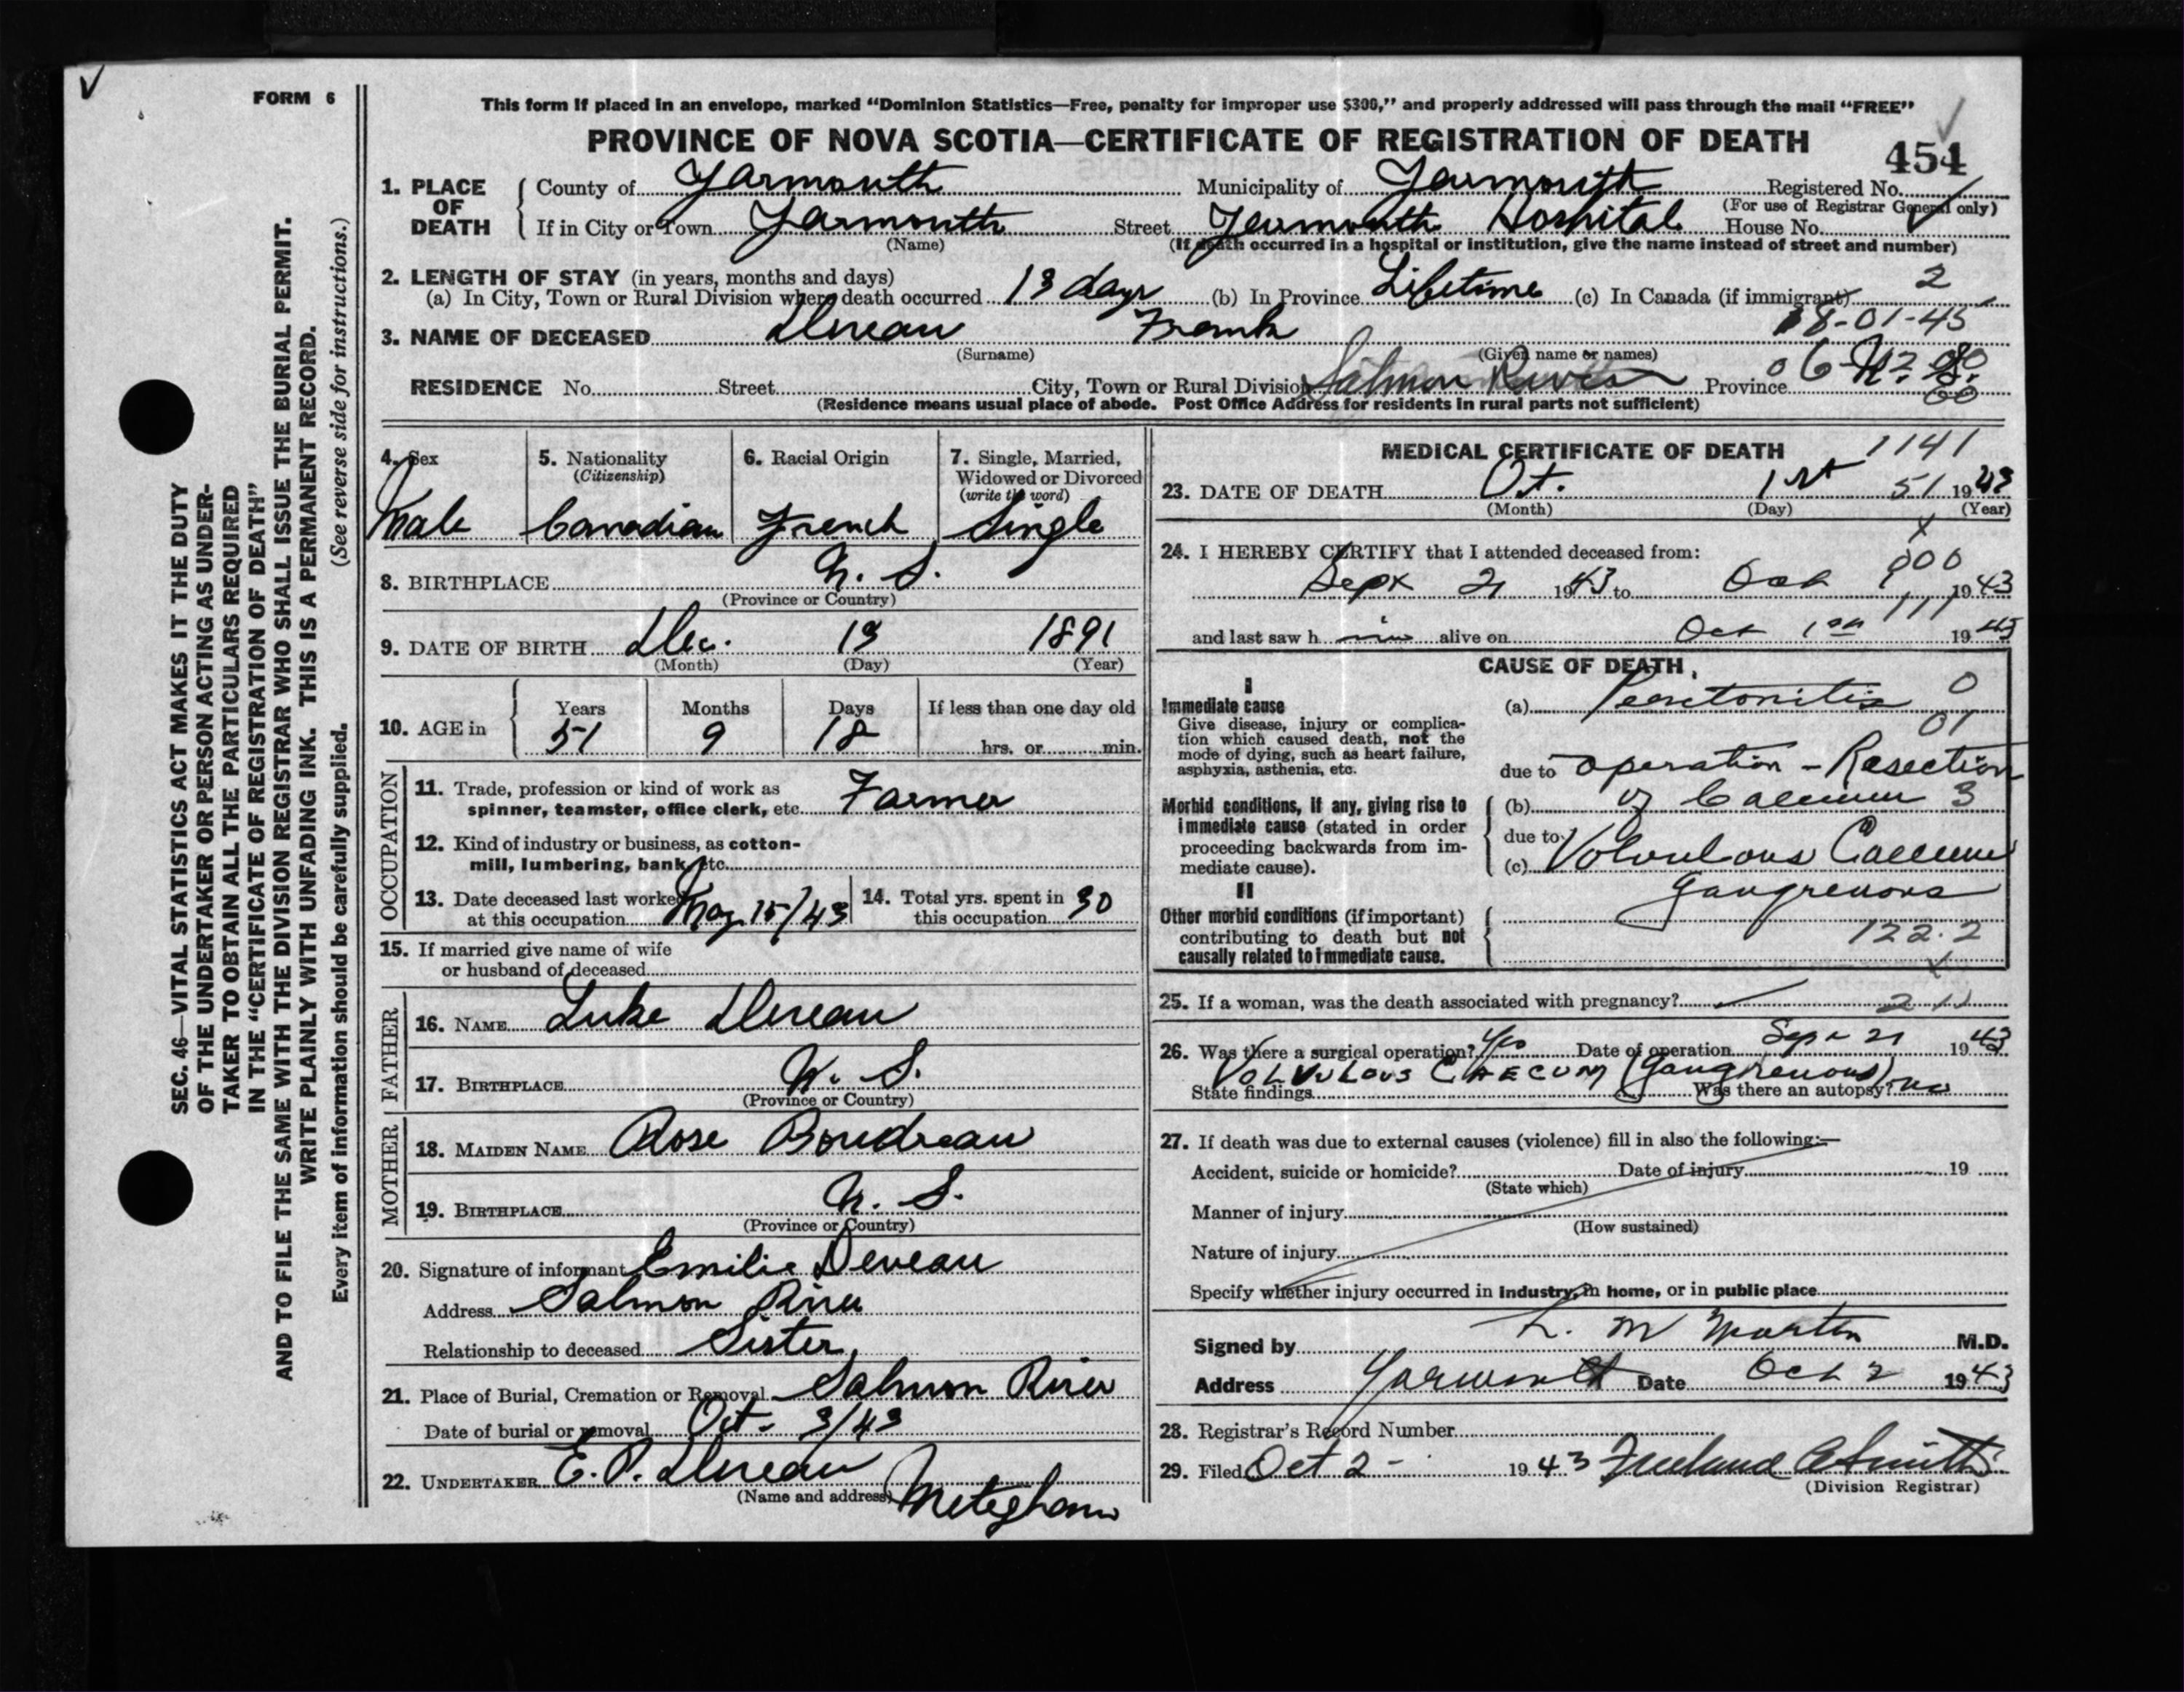 FORM 6
This form if placed in an envelope, marked "Dominion Statistics—Free, penalty for improper use $300," and properly addressed will pass through the mail "FREE"
PROVINCE OF NOVA SCOTIA—CERTIFICATE OF REGISTRATION OF DEATH
454
SEC. 46—VITAL STATISTICS ACT MAKES IT THE DUTY
OF THE UNDERTAKER OR PERSON ACTING AS UNDER-
TAKER TO OBTAIN ALL THE PARTICULARS REQUIRED
IN THE "CERTIFICATE OF REGISTRATION OF DEATH"
AND TO FILE THE SAME WITH THE DIVISION REGISTRAR WHO SHALL ISSUE THE BURIAL PERMIT.
WRITE PLAINLY WITH UNFADING INK. THIS IS A PERMANENT RECORD.
Every item of information should be carefully supplied. (See reverse side for instructions.)
1. PLACE OF DEATH County of Yarmouth Municipality of Yarmouth Registered No.
(For use of Registrar General only)
If in City or Town Yarmouth Street Yarmouth Hospital House No.
(Name) (If death occurred in a hospital or institution, give the name instead of street and number)
2. LENGTH OF STAY (in years, months and days)
(a) In City, Town or Rural Division where death occurred 13 days (b) In Province Lifetime (c) In Canada (if immigrant) 2
18-01-45
3. NAME OF DECEASED Deveau Frank
(Surname) (Given name or names)
RESIDENCE No. Street City, Town or Rural Division Salmon River Province
(Residence means usual place of abode. Post Office Address for residents in rural parts not sufficient)
4. Sex Male
5. Nationality (Citizenship) Canadian
6. Racial Origin French
7. Single, Married, Widowed or Divorced (write the word) Single
8. BIRTHPLACE N. S.
(Province or Country)
9. DATE OF BIRTH Dec. 13 1891
(Month) (Day) (Year)
10. AGE in Years 51 Months 9 Days 18 If less than one day old hrs. or min.
OCCUPATION
11. Trade, profession or kind of work as spinner, teamster, office clerk, etc. Farmer
12. Kind of industry or business, as cotton-
mill, lumbering, bank, etc.
13. Date deceased last worked at this occupation May 15/43
14. Total yrs. spent in this occupation 30
15. If married give name of wife
or husband of deceased
FATHER
16. NAME Luke Deveau
17. BIRTHPLACE N. S.
(Province or Country)
MOTHER
18. MAIDEN NAME Rose Boudreau
19. BIRTHPLACE N. S.
(Province or Country)
20. Signature of informant Emilie Deveau
Address Salmon River
Relationship to deceased Sister
21. Place of Burial, Cremation or Removal Salmon River
Date of burial or removal Oct. 3/43
22. UNDERTAKER E. P. Deveau
(Name and address) Meteghan
MEDICAL CERTIFICATE OF DEATH 1141
23. DATE OF DEATH Oct. 1st 51 1943
(Month) (Day) (Year)
24. I HEREBY CERTIFY that I attended deceased from:
Sept 21 1943 to Oct 1 1943
and last saw him alive on Oct 1st 1943
CAUSE OF DEATH
I
Immediate cause (a) Peritonitis 0
Give disease, injury or complica-
tion which caused death, not the
mode of dying, such as heart failure,
asphyxia, asthenia, etc.
01
due to operation - Resection
Morbid conditions, if any, giving rise to
immediate cause (stated in order
proceeding backwards from im-
mediate cause).
(b) of Caecum 3
due to
(c) Volvulous Caecum
Gangrenous
II
Other morbid conditions (if important)
contributing to death but not
causally related to immediate cause.
122.2
25. If a woman, was the death associated with pregnancy?
26. Was there a surgical operation? Yes Date of operation Sept 21 1943
State findings VOLVULOUS CAECUM (Gangrenous) Was there an autopsy? no
27. If death was due to external causes (violence) fill in also the following:—
Accident, suicide or homicide? Date of injury 19
(State which)
Manner of injury
(How sustained)
Nature of injury
Specify whether injury occurred in industry, in home, or in public place
Signed by L. M Morton M.D.
Address Yarmouth Date Oct 2 1943
28. Registrar's Record Number
29. Filed Oct 2 - 1943 Freeland A Smith
(Division Registrar)